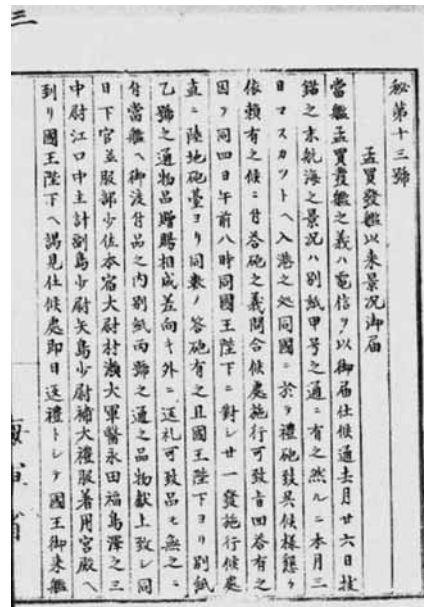 三
秘第十三號
孟買發艦以来景況御届
當艦孟買發艦之義ハ電信ヲ以御届仕候通去月廿六日抜
錨之末航海之景況ハ別紙甲号之通ニ有之然ルニ本月三
日マスカットヘ入港之処同國ニ於テ禮砲發呉候様懇々
依頼有之候ニ付答砲之義問合候處施行可致旨回答有之
因テ同四日午前八時同國王陛下ニ對シ廿一發施行候處
直ニ陸地砲臺ヨリ同數ノ答砲有之且國王陛下ヨリ別紙
乙號之通物品贈賜相成差向キ外ニ返礼可致品モ無之ニ
付當艦ヘ御渡付品之内別紙丙號之通之品物献上致シ同
日下官並服部少佐本宿大尉村瀬大軍醫永田福島澤之三
中尉江口中主計副島少尉矢島少尉補大禮服着用宮殿ヘ
到リ國王陛下ヘ謁見仕候處即日返禮トシテ國王御来艦
省